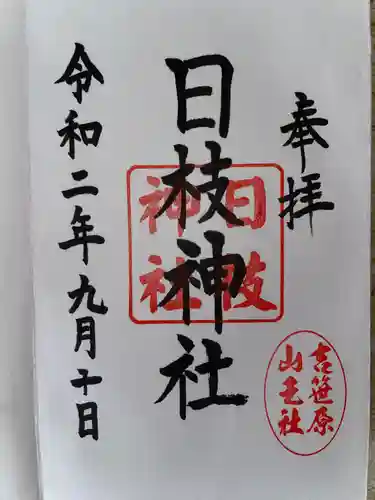 奉拝
日枝神社
日枝
神社
吉笹原
山王社
令和二年九月十日